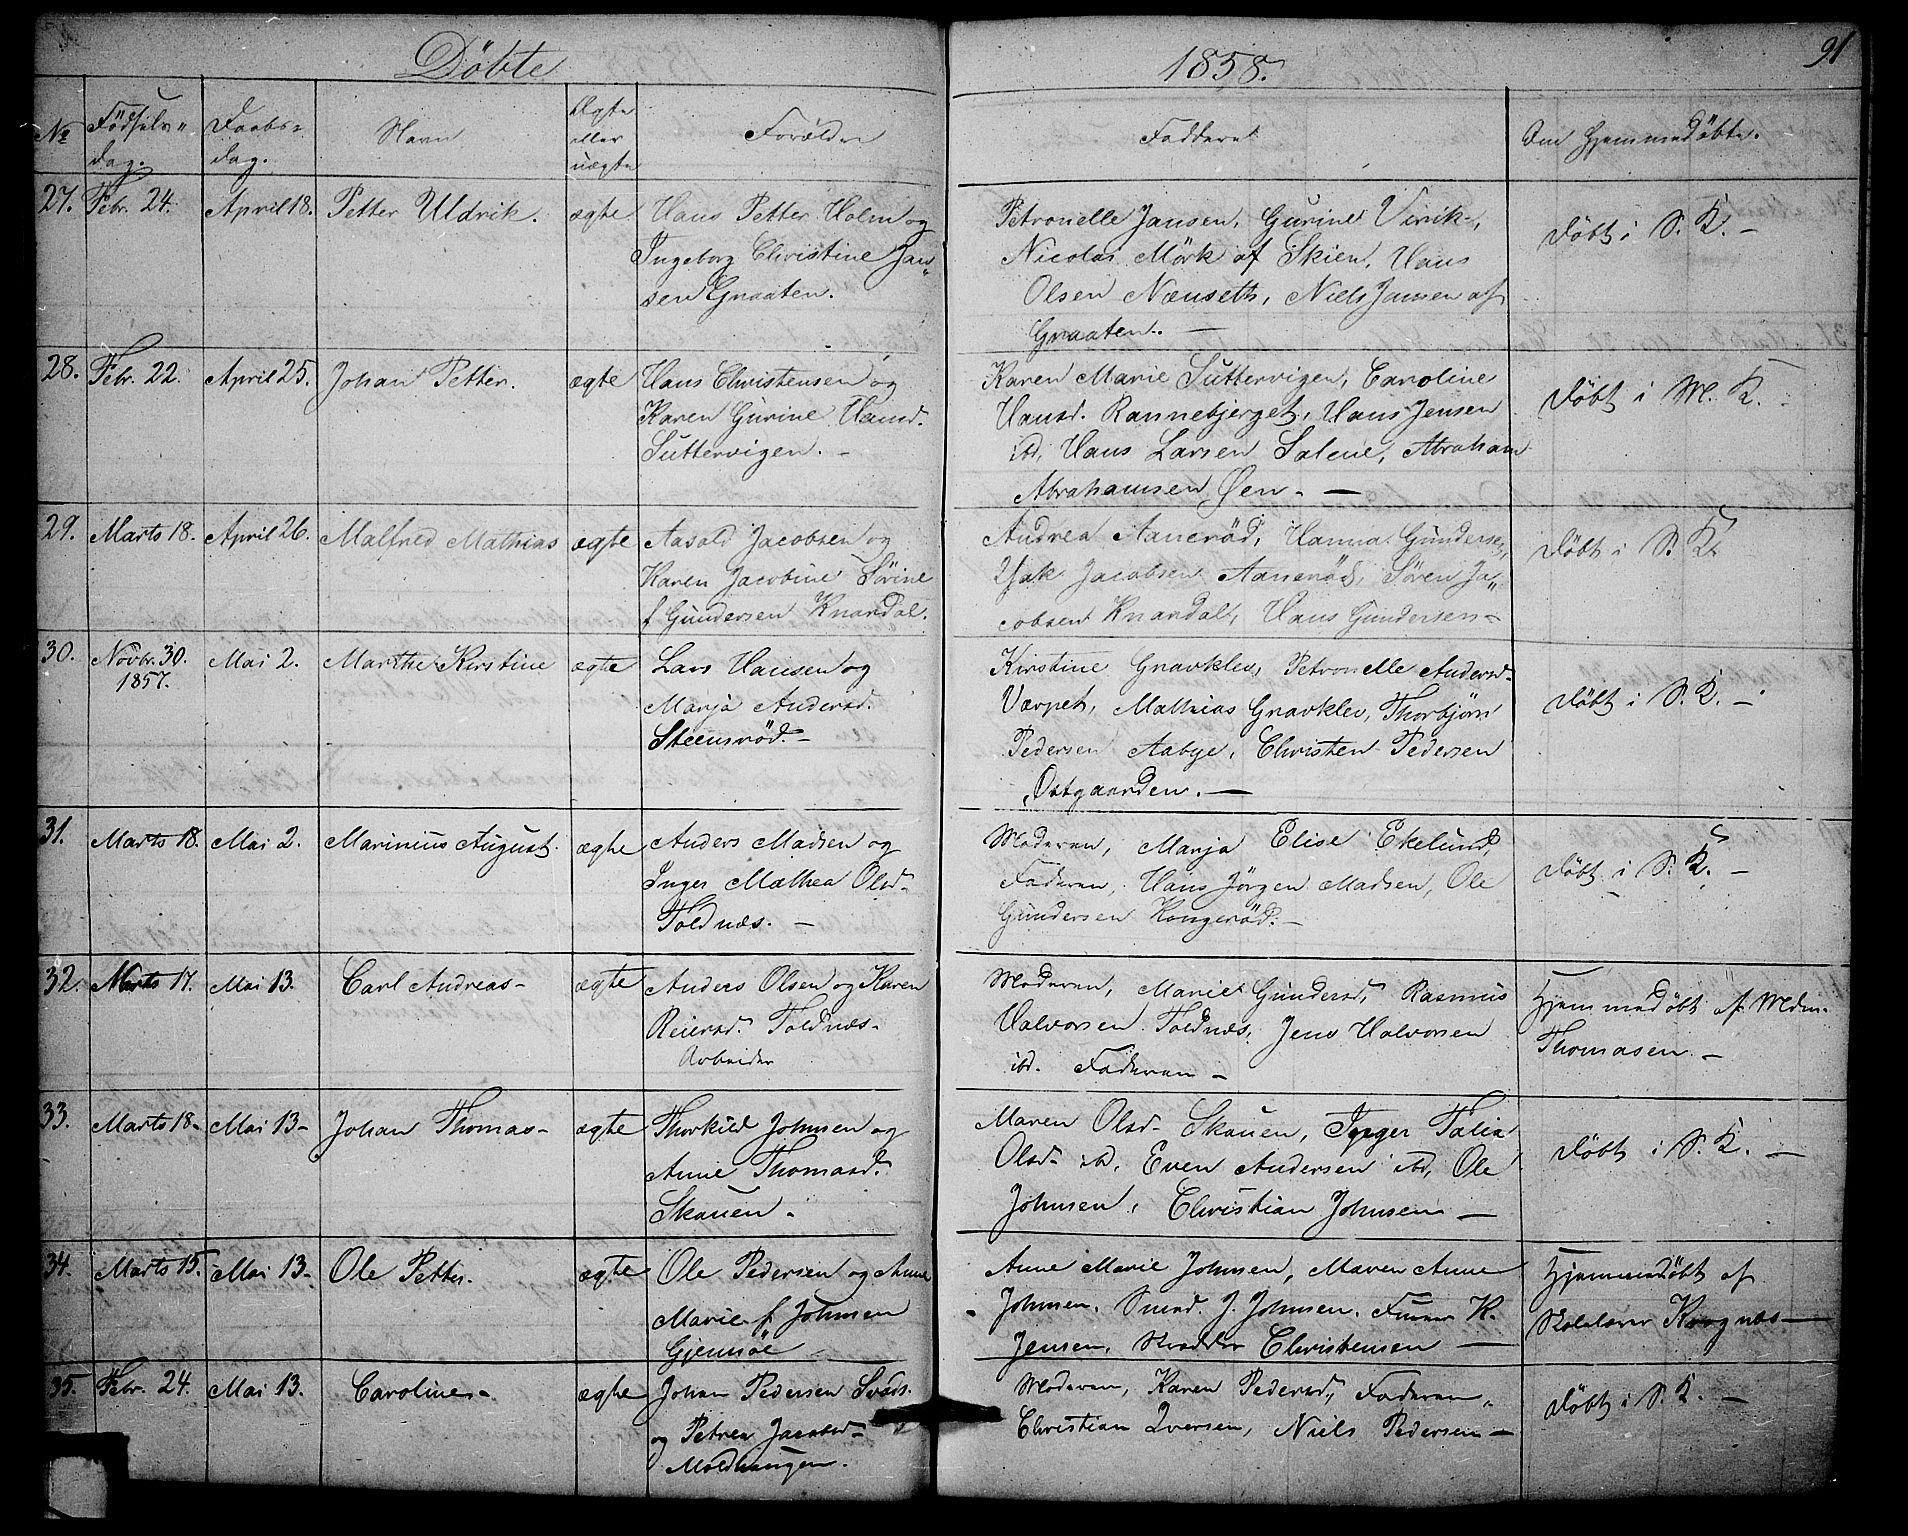 Döbte 1858. 91
No Födsels- dag. Daabs- dag. Navn Ægte eller uægte Forældre Faddere Om Hjemmedöbte.
27. Febr. 24. April 18. Petter Uldrik. ægte Hans Petter Holm og
Ingeborg Christine Jan„
sen Graaten.
Petronelle Jansen, Gurine Virik,
Nicolai Mörk af Skien, Hans
Olsen Næuseth, Niels Jansen af
Graaten. —
Döbt i S. K. —
28. Febr. 22. April 25. Johan Petter. ægte Hans Christensen og
Karen Gurine Hansd.
Suttervigen. —
Karen Marie Suttervigen, Caroline
Hansd. Rannebjerget, Hans Jensen
ibd, Hans Larsen Salene, Abraham
Abrahamsen Øen. —
Döbt i M. K. —
29. Marts 18. April 26. Malfred Mathias ægte Aasold Jacobsen og
Karen Jacobine Sörine
f Gundersen Knardal.
Andrea Aaneröd, Hanna Gunderse,
Isak Jacobsen Aaneröd, Sören Ja„
cobsen Knardal, Hans Gundersen —
Döbt i S. K.
30. Novbr. 30.
1857. Mai 2. Marthe Kirstine ægte Lars Hansen og
Marja Andersd.
Steensröd. —
Kirstine Gravklev, Petronelle Andersd
Værpet, Mathias Gravklev, Thorbjörn
Pedersen Aabye, Christen Pedersen
Ostgaarden. —
Döbt i S. K. —
31. Marts 18. Mai 2. Marinius August. ægte Anders Madsen og
Inger Mathea Olsd.
Toldnæs. —
Moderen, Marja Elise Ekelund,
Faderen, Hans Jörgen Madsen, Ole
Gundersen Kongeröd. —
Döbt i S. K. —
32. Marts 17. Mai 13. Carl Andreas — ægte Anders Olsen og Karen
Reiersd. Toldnæs.
Arbeider
Moderen, Marie Gundersd, Rasmus
Halvorsen Toldnæs, Jens Halvorsen
ibd. Faderen —
Hjemmedöbt af Mdm.
Thomasen —
33. Marts 18 — Mai 13 — Johan Thomas — ægte Thorkild Johnsen og
Anne Thomasd.
Skauen —
Maren Olsd. Skauen, Inger Talia
Olsd. ibd, Even Andersen ibd, Ole
Johnsen, Christian Johnsen —
Döbt i S. K. —
34. Marts 15. Mai 13 — Ole Petter. ægte Ole Pedersen og Anne
Marie f Johnsen
Gjemsöe —
Anne Marie Johnsen, Maren Anne
Johnsen, J. Johnsen. K.
Jensen, Christensen —
Hjemmedöbt af
Krognæs —
35. Febr. 24. Mai 13. Caroline — ægte Johan Pedersen
og Petrea Jacobsd —
Moldhaugen.
Moderen, Karen Pedersd, Faderen,
Christian Iversen, Niels Pedersen —
Döbt i S. K. —